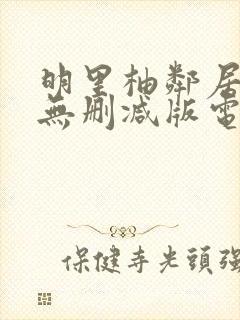 明里柚鄰居
無删减版電
保健寺光頭強